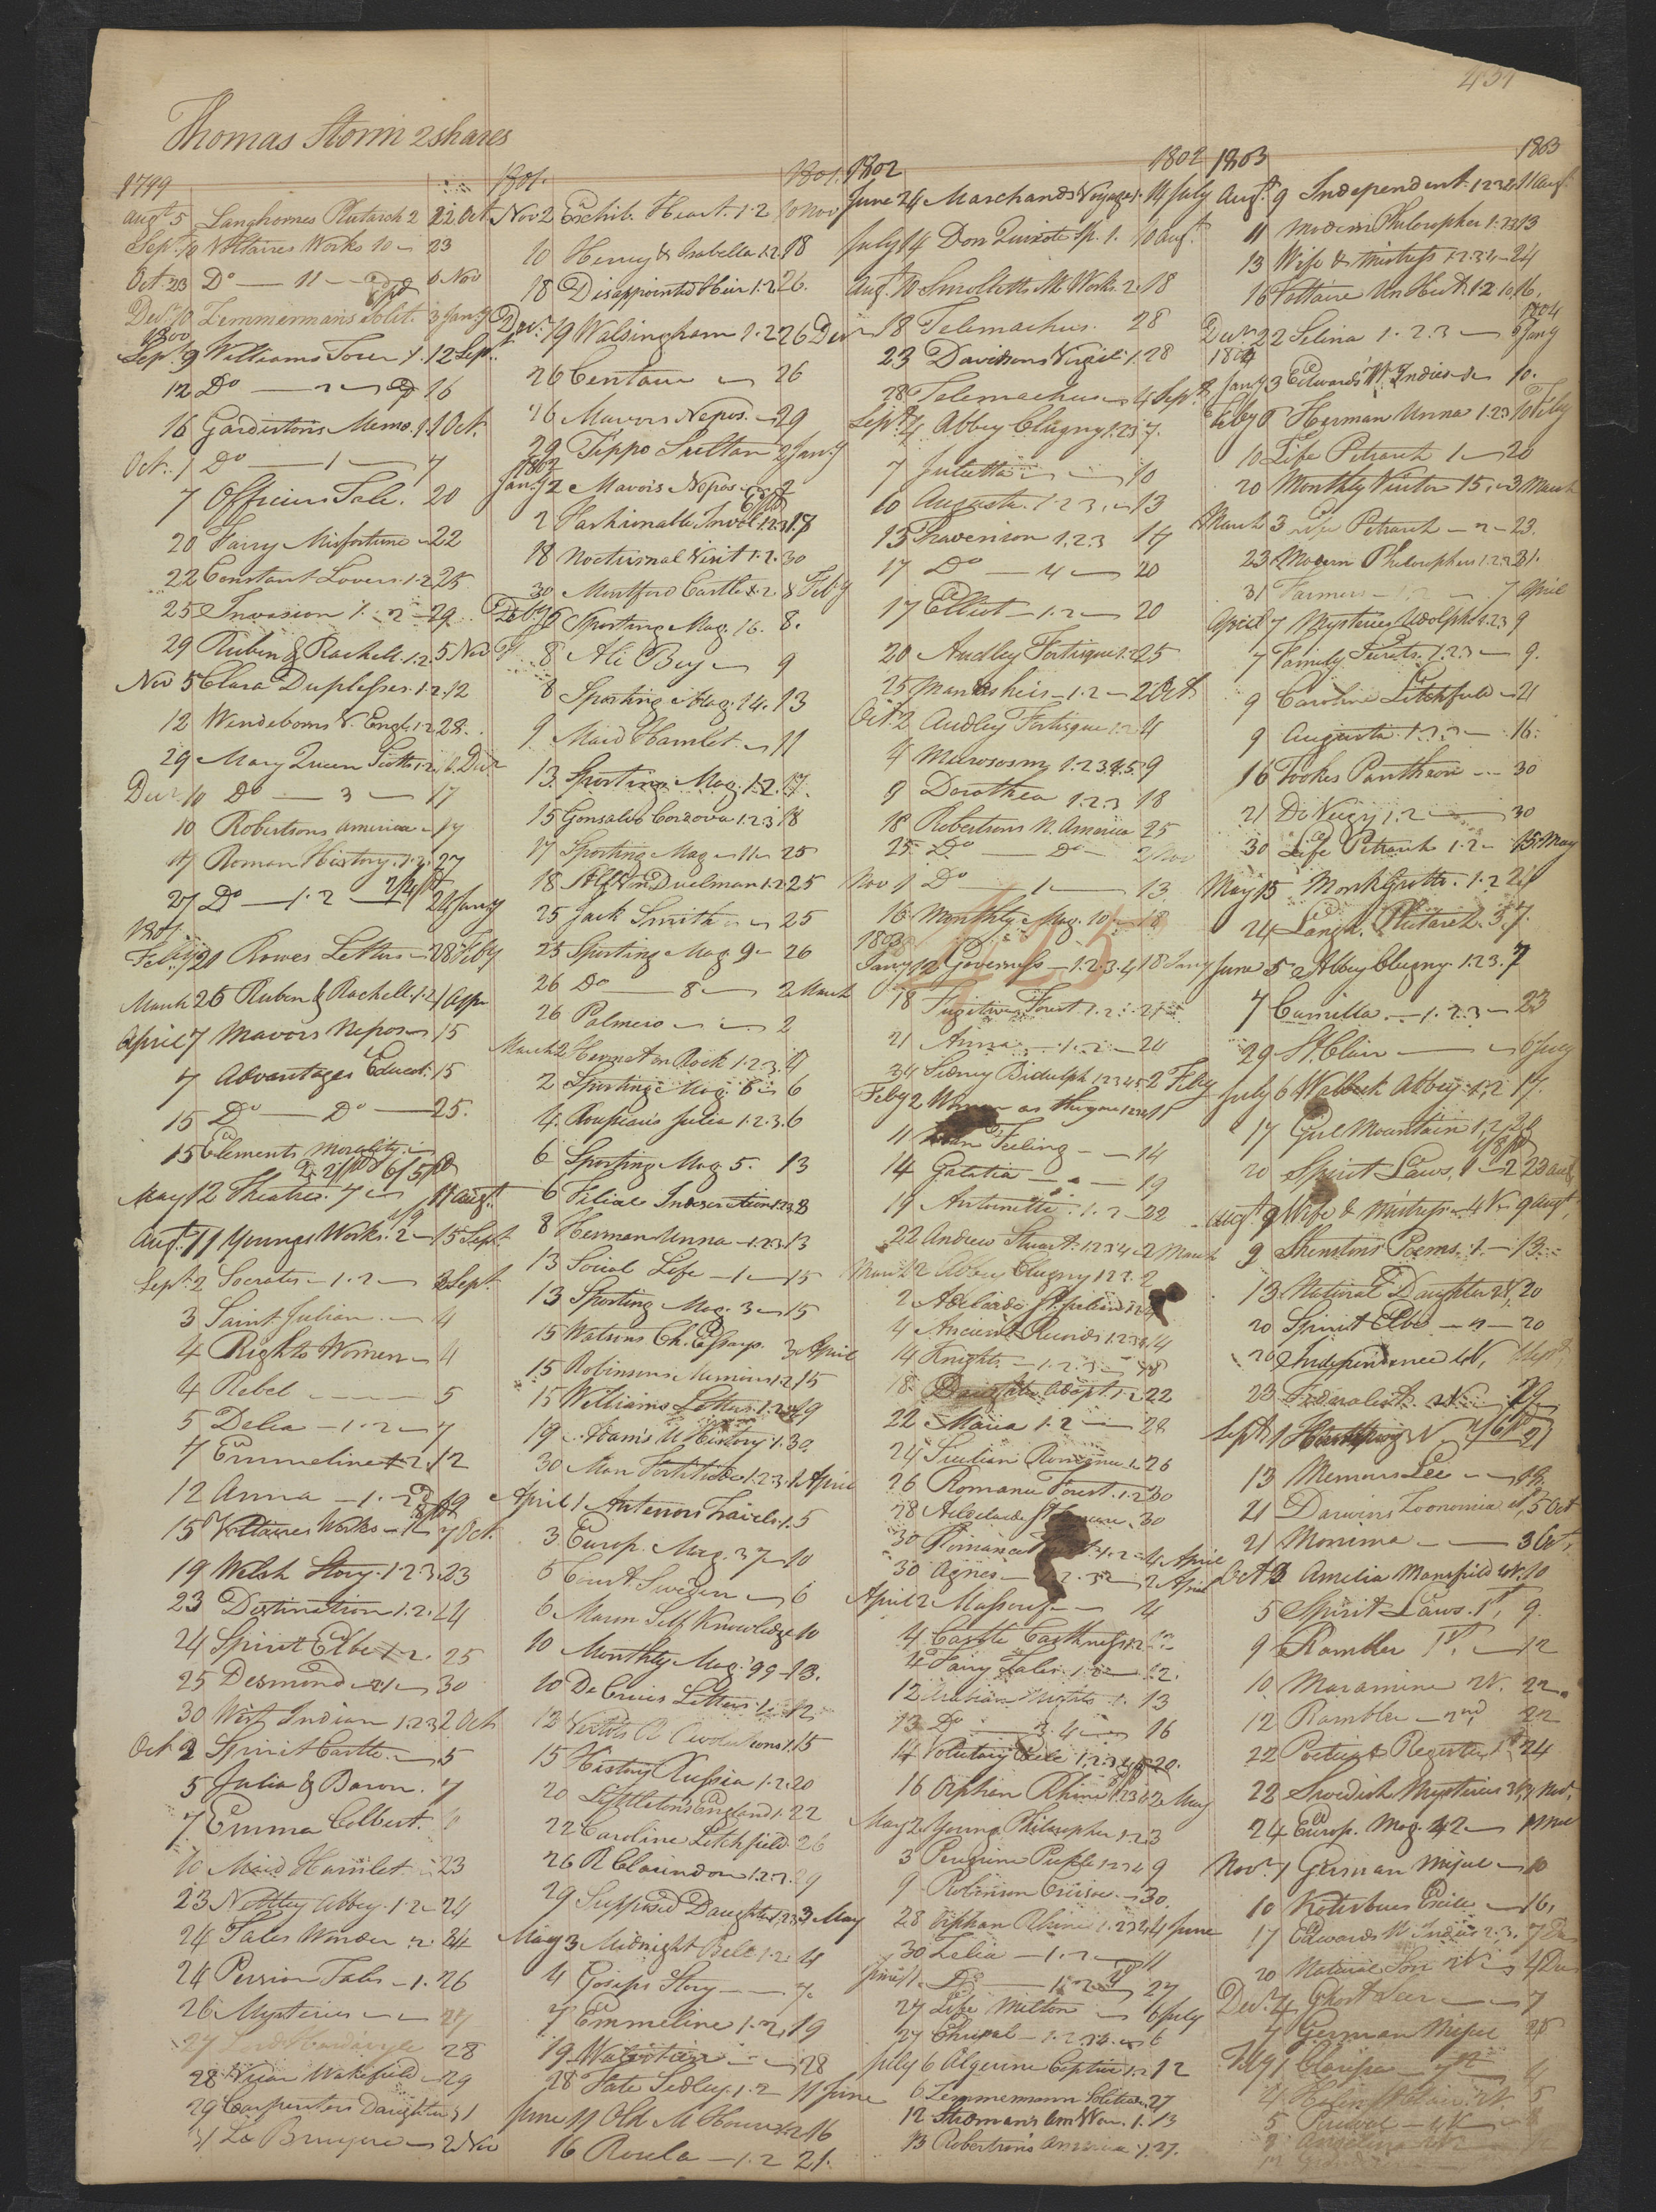 Thomas Storm 2 shares
1799
Augt 5 Langhornes Plutarch 2 22 Oct
Sept 10 Voltaires Works 10 23
Oct 23 Do 11 6 Nov
Decr 10 Zemmermans Solit. 3 Jany
1800
Sept 9 Williams Tour 1. 12 Sep.
12 Do 2 16
16 Gardistons Memo. 1. 1 Oct.
Oct. 1 Do 1 7
7 Officious Tale. 20
20 Fairy Misfortune 22
22 Constant Lover. 1.2 25
25 Invasion 1. 2 29
29 Ruben & Rachell. 1.2. 5 Nov
Nov 5 Clara Duplesses. 1.2. 12
12 Wendeborns V. Engl. 1.2. 28.
29 Mary Queen Scotts 1.2. 10 Decr
Decr 10 Do 3 17
10 Robertsons America 17
17 Roman History. 1.2. 27
27 Do 1.2 24 Jany
1801.
Feby 20 Rowes Letters 28 Feby
March 26 Ruben & Rachell. 1.2. 1 Apr
April 7 Mavors Nepos 15
7 Advantages Educat. 15
15 Do Do 25.
15 Elements Morality.
May 12 Theatre. 7 11 Augt.
Augt. 11 Youngs Works. 2 15 Sept.
Sept. 2 Socrates 1.2 3 Sept.
3 Saint Julian 4
4 Rights Women 4
4 Rebel 5
5 Delia 1.2 7
7 Emmeline 1.2. 12
12 Anna 1.2 19
15 Voltaires Works 12 7 Oct.
19 Welsh Story. 1.2.3. 23
23 Destination 1.2. 24
24 Spirit Elbe 1.2. 25
25 Desmond 2 30
30 West Indian 1.2.3. 2 Oct
Oct 2 Spirit Castle. 5
5 Julia & Baron. 7
7 Emma Colbert.
10 Maid Hamlet 23
23 Nettley Abbey. 1.2 24
24 Tales Wonder 2. 24
24 Persian Tales 1. 26
26 Mysteries 27
27 Lord Hardivyle 28
28 Vicar Wakefield 29
29 Carpenters Daughter 31
31 La Bruyere 2 Nov
1801. 1801.
Nov 2 Exhib. Heart. 1.2 10 Nov
10 Henry & Isabella 1.2. 18
18 Disappointed Heir 1.2 26.
Decr. 19 Walsingham 1.2 26 Decr
26 Centaur 26
26 Mavors Nepos. 29
29 Tippo Sultan 2 Jany
1802
Jany 2 Mavors Nepos 2
2 Fashionable Invol. 1.2.3 18
18 Nocturnal Visit 1.2. 30
30 Montford Castle 1.2 8 Feby
Feby 6 Sporting Mag. 16. 8.
8 Ali Bey 9
8 Sporting Mag. 14. 13
9 Maid Hamlet 11
13 Sporting Mag. 12. 17.
15 Gonsalvo Cordova 1.2.3 18
17 Sporting Mag 11 25
18 Alf Von Duelman 1.2. 25
25 Jack Smith 25
25 Sporting Mag. 9 26
26 Do 8 2 March
26 Palmeio 2
March 2 Hermsten Rock 1.2.3. 4
2 Sporting Mag. 6 6
4 Roupeaus Julia 1.2.3. 6
6 Sporting Mag. 5. 13
6 Filial Indiscretion 1.2.3. 8
8 Herman Unna 1.2.3 13
13 Social Life 1 15
13 Sporting Mag. 3 15
15 Watsons Ch. Essays. 3 April
15 Robinsons Memoirs 1.2 15
15 Williams Letters 1.2. 19
19 Adams U History. 1. 30.
30 Man Fortitude 1.2.3. 1 April
April 1 Antenors Travels. 1. 5
3 Europ. Mag. 37 10
5 Court Sweden 6
6 Mason Self Knowledge 10
10 Monthly Mag. 99 13.
10 De Crius Letters. 12
12 Vertots R Revolutions 1. 15
15 History Russia 1.2. 20
20 Littletons England 1. 22
22 Caroline Litchfield 26
26 R Clarindon 1.2.3. 29
29 Supposed Daughter 1.2.3. 3 May
May 3 Midnight Bell 1.2. 4
4 Gosips Story 7.
7 Emmeline 1.2. 19
19 28
28 Fate Sedley. 1.2 11 June
June 11 Old M House 1.2. 16
16 Rosela 1.2 21.
1802 1802
June 24 Marchands Voyage. 14 July
July 14 Don Quixote Sp. 1. 10 Augt.
Augt 10 Smolletts M Works. 2. 18
18 Telemachus. 28
23 Davidsons Virgil 1. 28
28 Telemachus 4 Sept.
Sept. 4 Abbey Clugny 1.2.3. 7.
7 Julietta 10
10 Augusta. 1.2.3. 13
13 Fravenison 1.2.3 17
17 Do 4 20
17 Elliot 1.2 20
20 Audley Fortisque 1.2 25
25 1.2 2 Oct
Oct. 2 Audley Fortisque 1.2. 4
4 1.2.3.4.5. 9
9 Dorothea 1.2.3 18
18 Robertsons N. America 25
25 Do Do 2 Nov
Nov 1 Do 1 13.
16 Monthly Mag. 10 18
1803
Jany 12 Governess 1.2.3.4 18 Jany
18 Fugitive Forest 1.2 21
21 Anna 1.2 24
Sidney Bidulph 1.2.3.4.5 2 Feby
Feby 2
11 Man Feeling 14
14 Galatia 19
19 Antoinette 1.2 22
22 Andrew Stuart. 1.2.3.4 2 March
March 2 Abbey Clugny 1.2.3. 2
2 Adelaide St. Julian 1.2
4 Ancient Records 1.2.3.4 14
14 Knights 1.2.3 18
18. Daughter Adopt. 1.2 22
22 Maria 1.2 28
24 Sicilian Romance 1. 26
26 Romance Forest. 1.2 30
28 Adelaide 30
30 Romance 1.2 4 April
30 Agnes 1.2.3 2 April
April 2 Massouf 4
4 Castle Caithness 1.2
4 Fairy Tales. 1.2 12.
12 Arabian Nights. 1. 13
13 Do 3.4 16
14 Volutary Exile 1.2.3.4.5 20.
16 Orphan Rhine 1.2.3.4 2 May
May 2 Young Philosopher 1.2. 3
3 Peregrine Pickle 1.2.3.4 9
9 Robinson Crusoe 30.
28 Orphan Rhine 1.2.3.4. 4 June
30 Zelia 1.2 11
June 11 Do 1.2 27
27 Life Milton 6 July
27 Chupal 1.2.3.4. 6
July 6 Algerine Captive 1.2 12
6 Zemmermann Solitude 27
12 Stedmans Am War. 1. 13
13 Robertsons America 1. 27.
1803 1803
Augt. 9 Independent. 1.2 11 Augt
11 Modern Philosopher 1.2.3 13
13 Wife & Mistress 1.2.3.4 24
16 Voltaire Un Hist. 1.2 16,
1804
Decr. 22 Selina 1.2.3 Jany
1804
Jany 3 Edwards W. Indies 10.
Feby 6 Herman Unna 1.2.3. 10 Feby
10 Life Petrarch 1 20
20 Monthly Visitor 15, 3 March
March 3 Life Petrarch 2 23.
23 Modern Philosopher 1.2.3 31.
31 Farmers 1.2 7 April
April 7 Mysteries Udolpho 1.2.3 9
7 Family Secrets. 1.2.3 9.
9 Caroline Litchfield 21
9 Augusta 1.2.3 16.
16 Tookes Pantheon 30
21 De Veizy 1.2 30
30 Life Petrarch 1.2 15 May
May 15 Monk Grotto. 1.2 21
24 Langh. Plutarch. 3. 7.
June 5 Abbey Clugny. 1.2.3. 7
7 Camilla. 1.2.3 23
29 St Clair 6 July
July 6 Walbeck Abbey. 1.2 17.
17 Girl Mountain 1,2, 20
20 Spirit Laws. 1 2 23 Augt
Augt 9 Wife & Mistress 4 V 9 Augt.
9 Shenstons Poems. 1. 13.
13 Natural Daughter 2 V, 20
20 Spirit Elbe 20
20 Independance 4 V, 1 Sept
23 Federalist 2 V
Sept 1
13 Memoirs Lee 18,
21 Darwins Zoonomia 5 Oct
21 Monima 3 Oct,
Oct 3 Amelia Mansfield 4 V. 10
5 Spirit Laws. 1st, 9.
9 Rambler 1st. 12
10 Maramine 2 V. 22.
12 Rambler 2nd 22
22 Poetical Register 1st 24
22 Swedish Mysteries 3 V, Nov,
24 Europ. Mag. 42 Nov
Novr 1 German Miscel 10
10 Kotzebues Exile 16,
17 Edwards W Indies 2.3. 7 Dec
20 Natural Son 2 V 4 Dec
Decr. 4 Ghost Seer 7
7 German Miscel 28
Feby 1 Clarissa
4 Helen St Clair 2 V. 5
5
8 Angelina 2 V